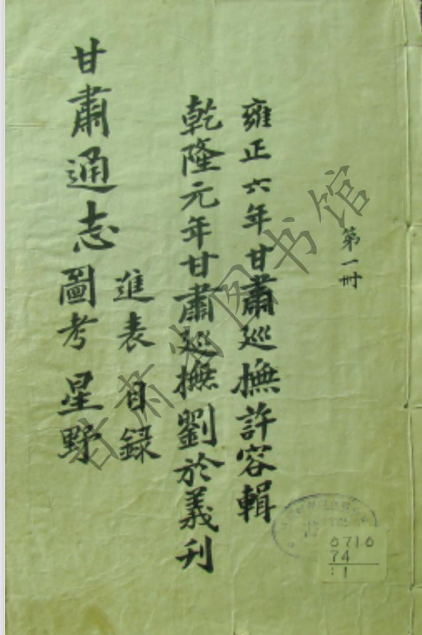 第一冊
雍正六年甘肅巡撫許容輯
乾隆元年甘肅巡撫劉於義刊
甘肅通志
進表 目錄
圖考 星野
甘肃省图书馆
0710
74
:1